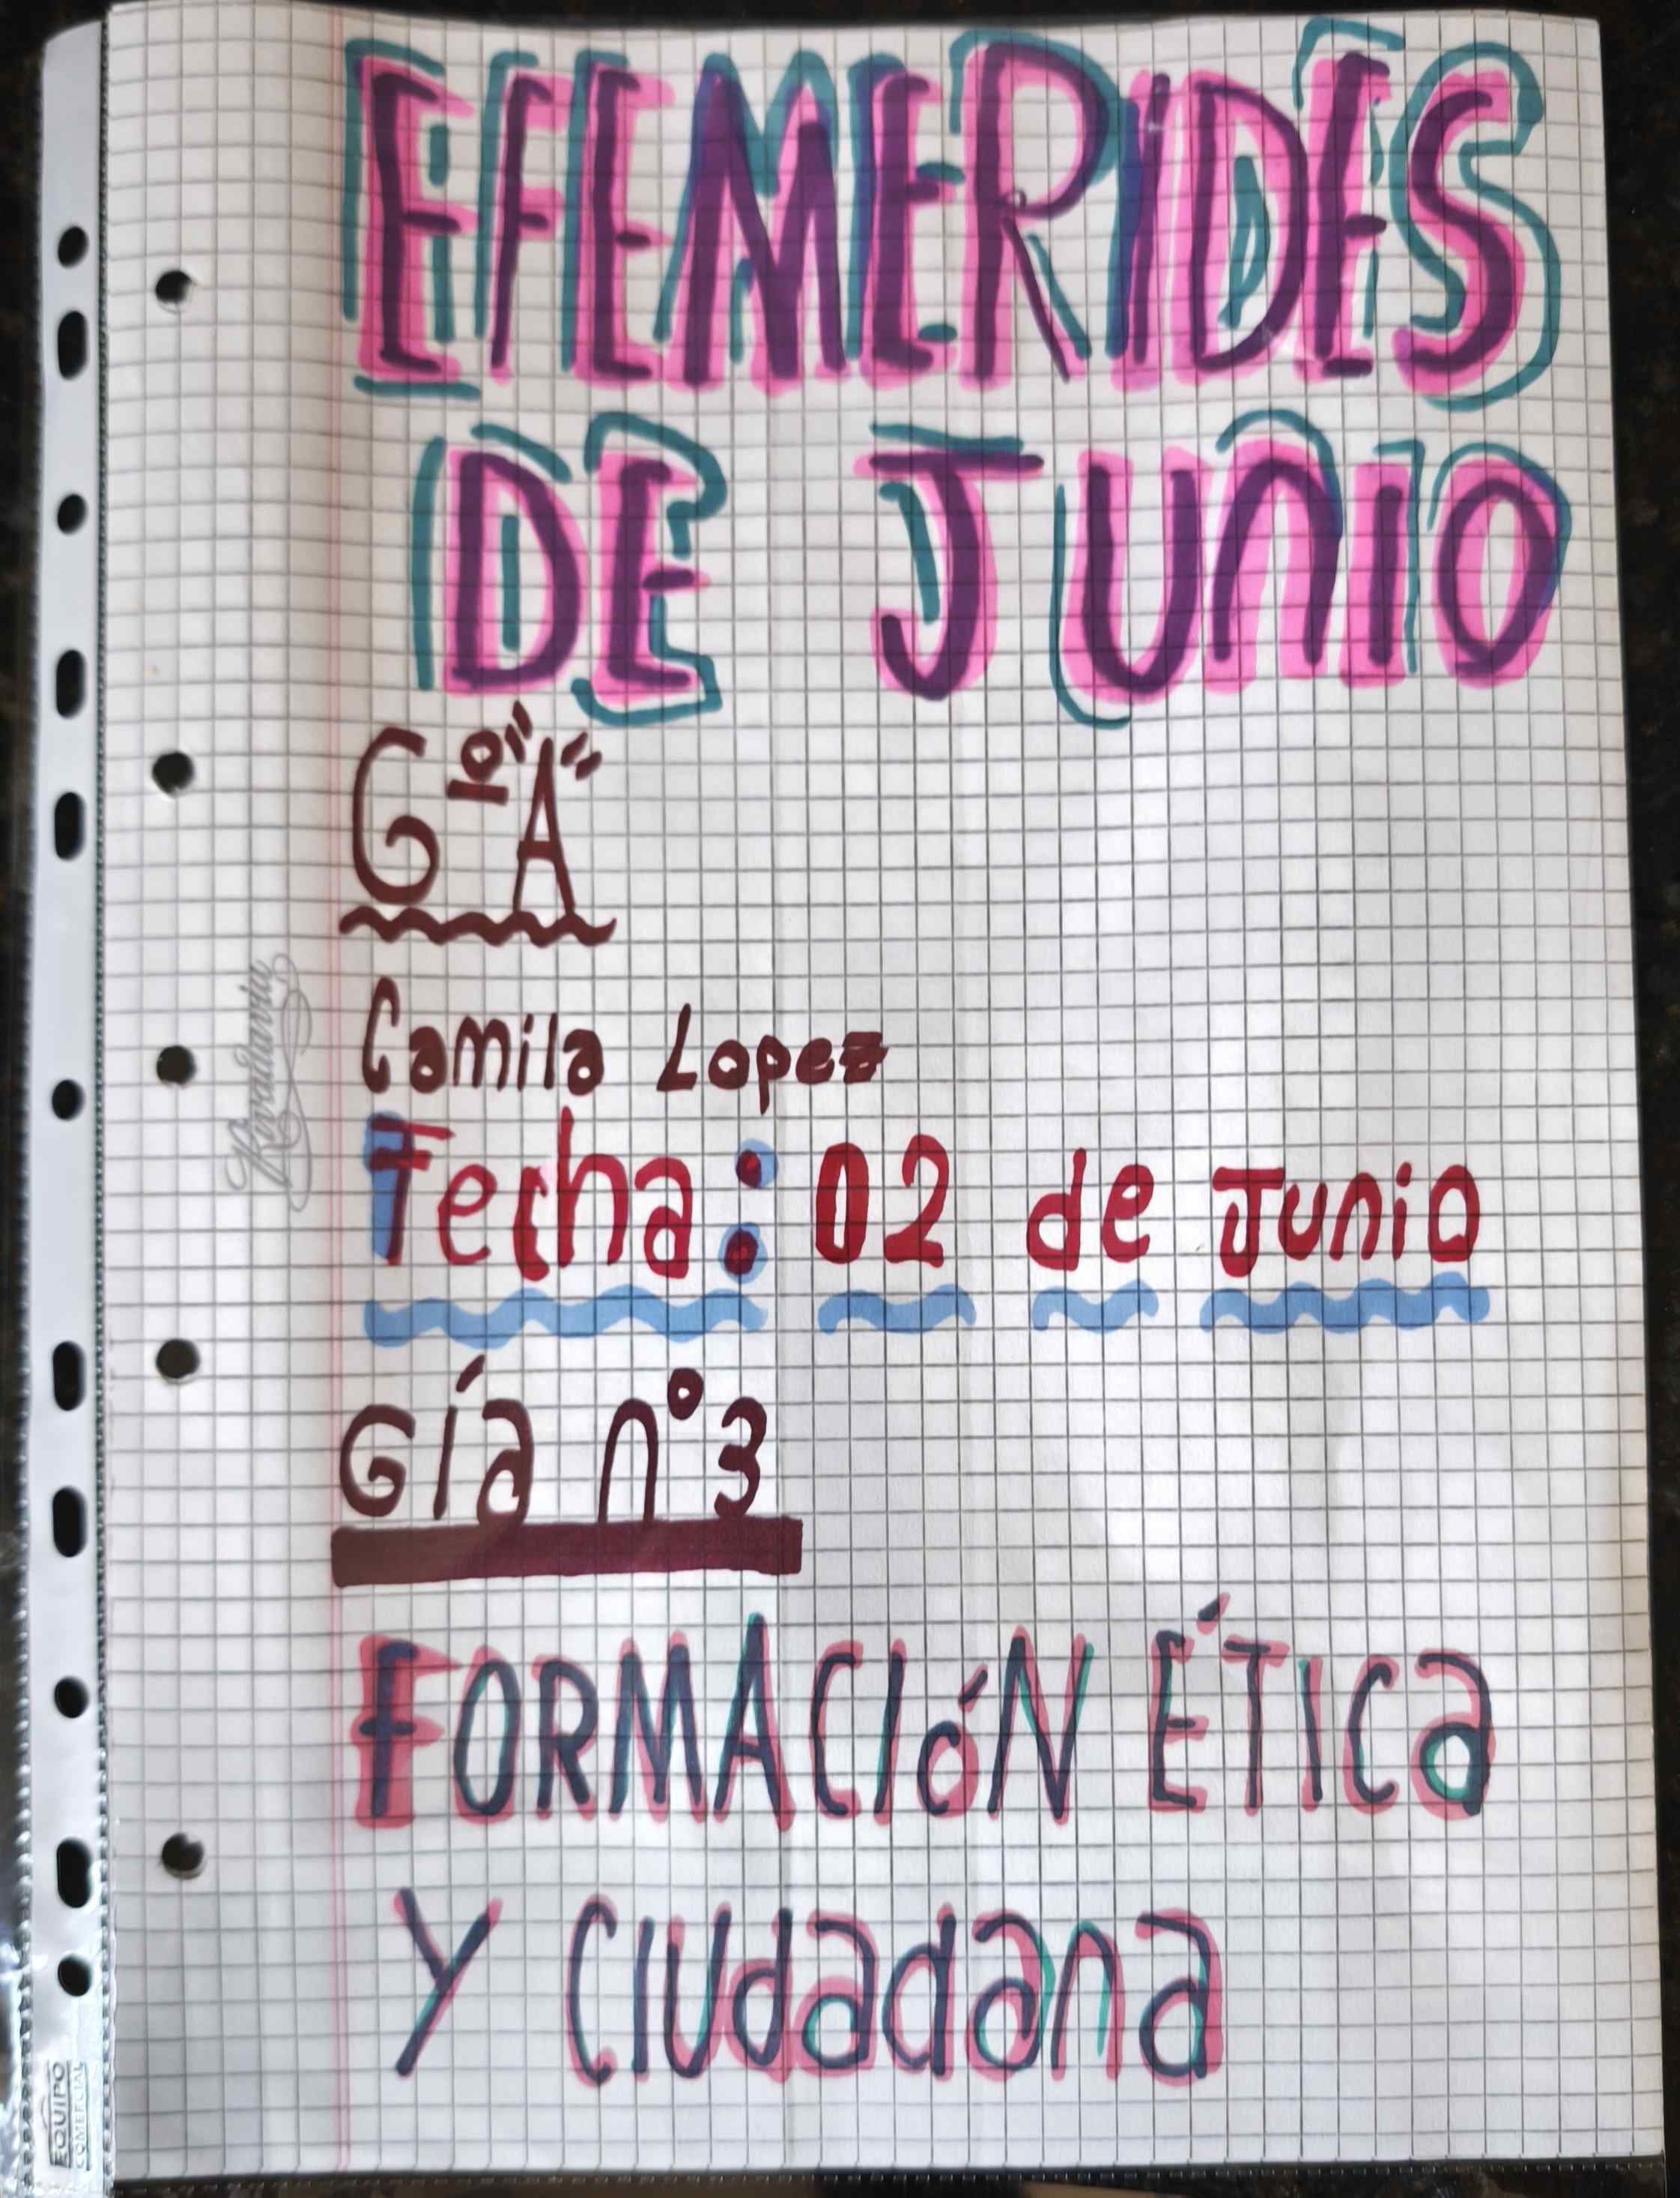 EFEMERIDES
DE JUNIO
6º "A"
Camila Lopez
Fecha: 02 de Junio
Gía n°3
FORMACIÓN ÉTICA
Y CIUdadana
Rivadavia
EQUIPO
COMERCIAL